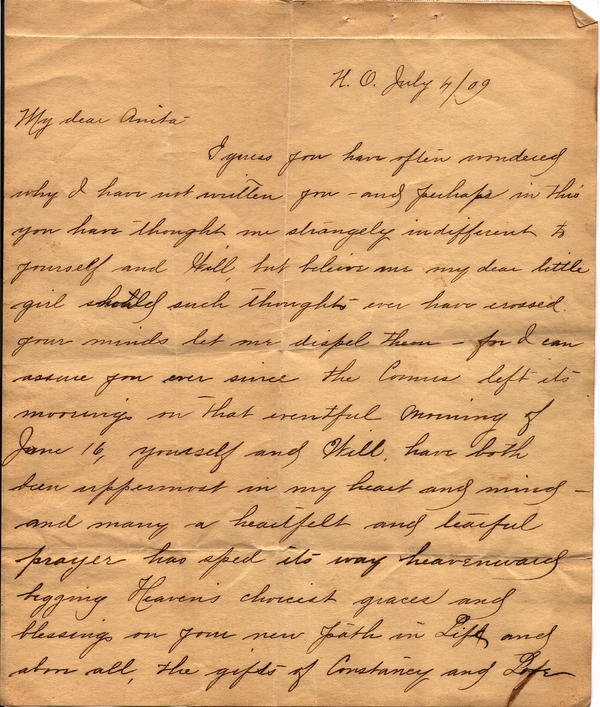 N. O. July 4/09
My dear Anita-
I guess you have often wondered
why I have not written you - and perhaps in this
you have thought me strangely indifferent to
yourself and Will, but believe me my dear little
girl should such thoughts ever have crossed
your minds let me dispel them - for I can
assure you ever since the Comus left its
moorings on that eventful morning of
June 16, yourself and Will, have both
been uppermost in my heart and mind -
and many a heartfelt and tearful
prayer has sped its way heavenward
begging Heaven's choicest graces and
blessings on your new path in Life and
above all, the gifts of Constancy and Love